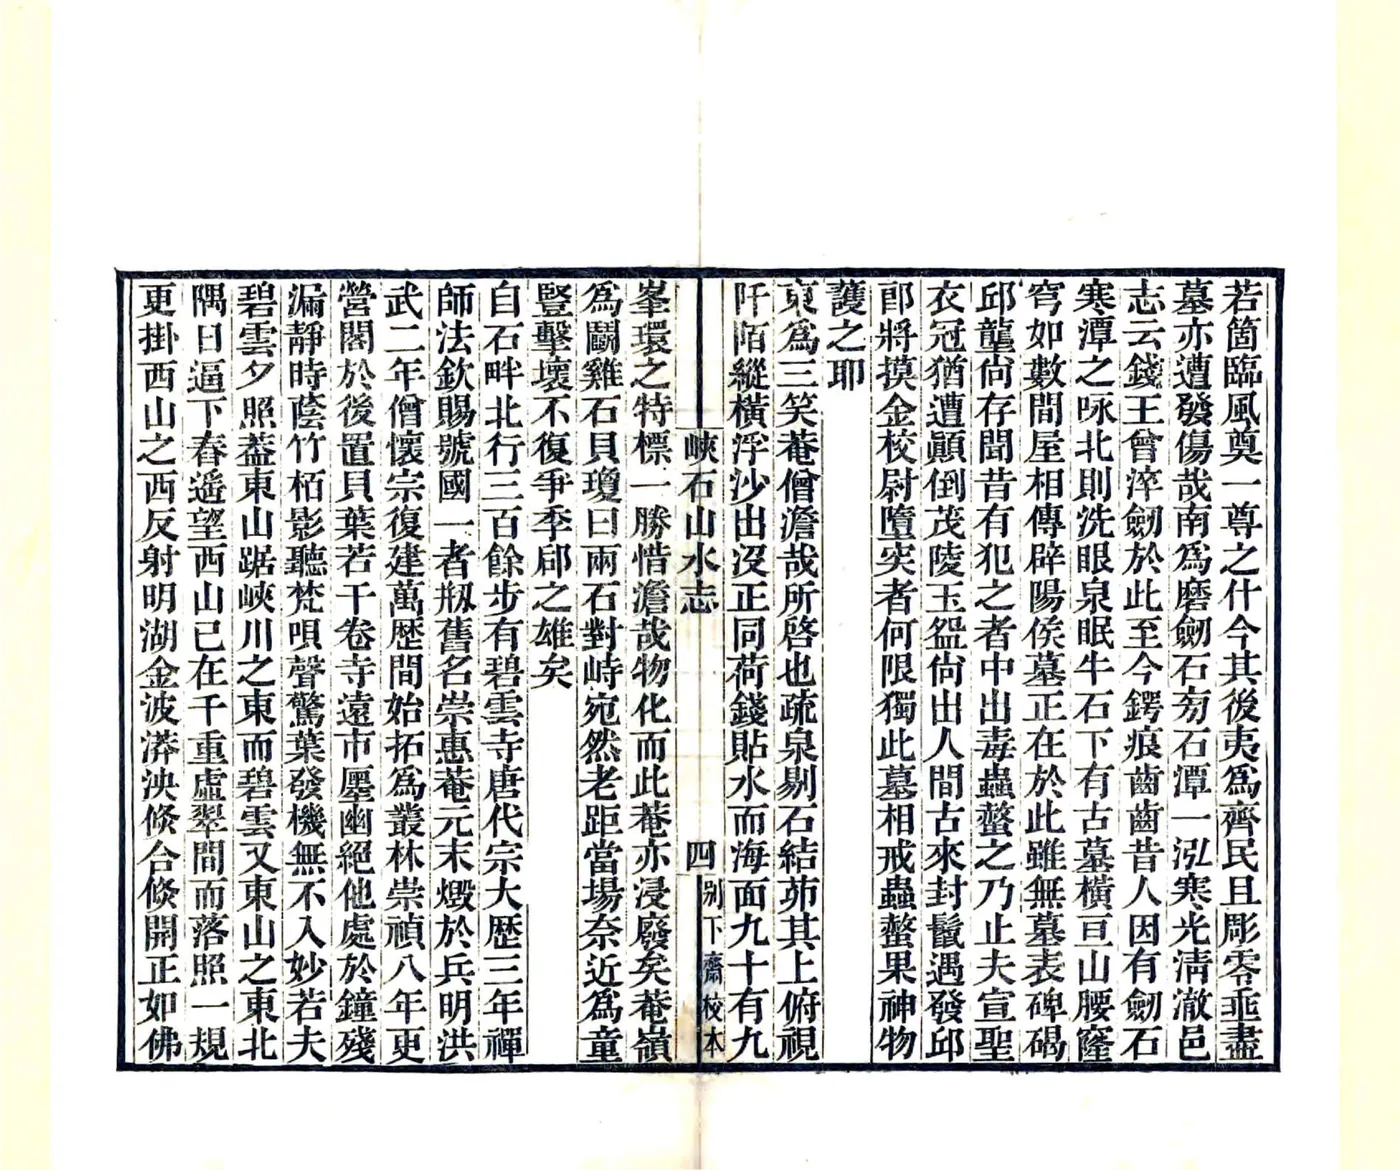 若箇臨風奠一尊之什今其後夷爲齊民且彫零垂盡
墓亦遭發傷哉南爲磨劒石旁石潭一泓寒光清澈邑
志云錢王曾淬劒於此至今鍔痕齒齒昔人因有劒石
寒潭之咏北則洗眼泉眠牛石下有古墓橫亘山腰窿
穹如數間屋相傳辟陽侯墓正在於此雖無墓表碑碣
邱壟尙存聞昔有犯之者中出毒蟲螫之乃止夫宣聖
衣冠猶遭顚倒茂陵玉盌尙出人間古來封鬛遇發邱
郎將摸金校尉墮突者何限獨此墓相戒蟲螫果神物
護之耶
東爲三笑菴僧澹哉所啓也疏泉剔石結茆其上俯視
阡陌縱橫浮沙出沒正同荷錢貼水而海面九十有九
峽石山水志
四
別下齋校本
峯環之特標一勝惜澹哉物化而此菴亦浸廢矣菴嶺
爲鬭雞石貝瓊曰兩石對峙宛然老距當場奈近爲童
豎擊壞不復爭季郈之雄矣
自石畔北行三百餘步有碧雲寺唐代宗大歷三年禪
師法欽賜號國一者剏舊名崇惠菴元末燬於兵明洪
武二年僧懷宗復建萬歴間始拓爲叢林崇禎八年更
營閣於後置貝葉若干卷寺遠市廛幽絕他處於鐘殘
漏靜時蔭竹栢影聽梵唄聲驚葉發機無不入妙若夫
碧雲夕照葢東山踞峽川之東而碧雲又東山之東北
隅日逼下舂遥望西山已在千重虛翠間而落照一規
更掛西山之西反射明湖金波漭泱倐合倐開正如佛